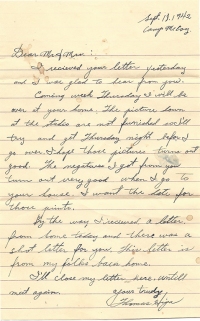 Sept. 13, 1942
Camp McCoy
Dear Mr & Mrs :
I recieved your letter yesterday
and I was glad to hear from you.
Coming week Thursday I will be
over at your home. The pictures down
at the studio are not furnished. We'll
try and get Thursday night before I
go over. I hope those pictures turns out
good. The negatives I got from you
turn out very good when I go to
your house I want the late for
those prints.
By the way I recieved a letter
from home today and there was a
short letter for you. This letter is
from my folks back home.
I'll close my letter here until
meet again.
Yours truly
Thomas